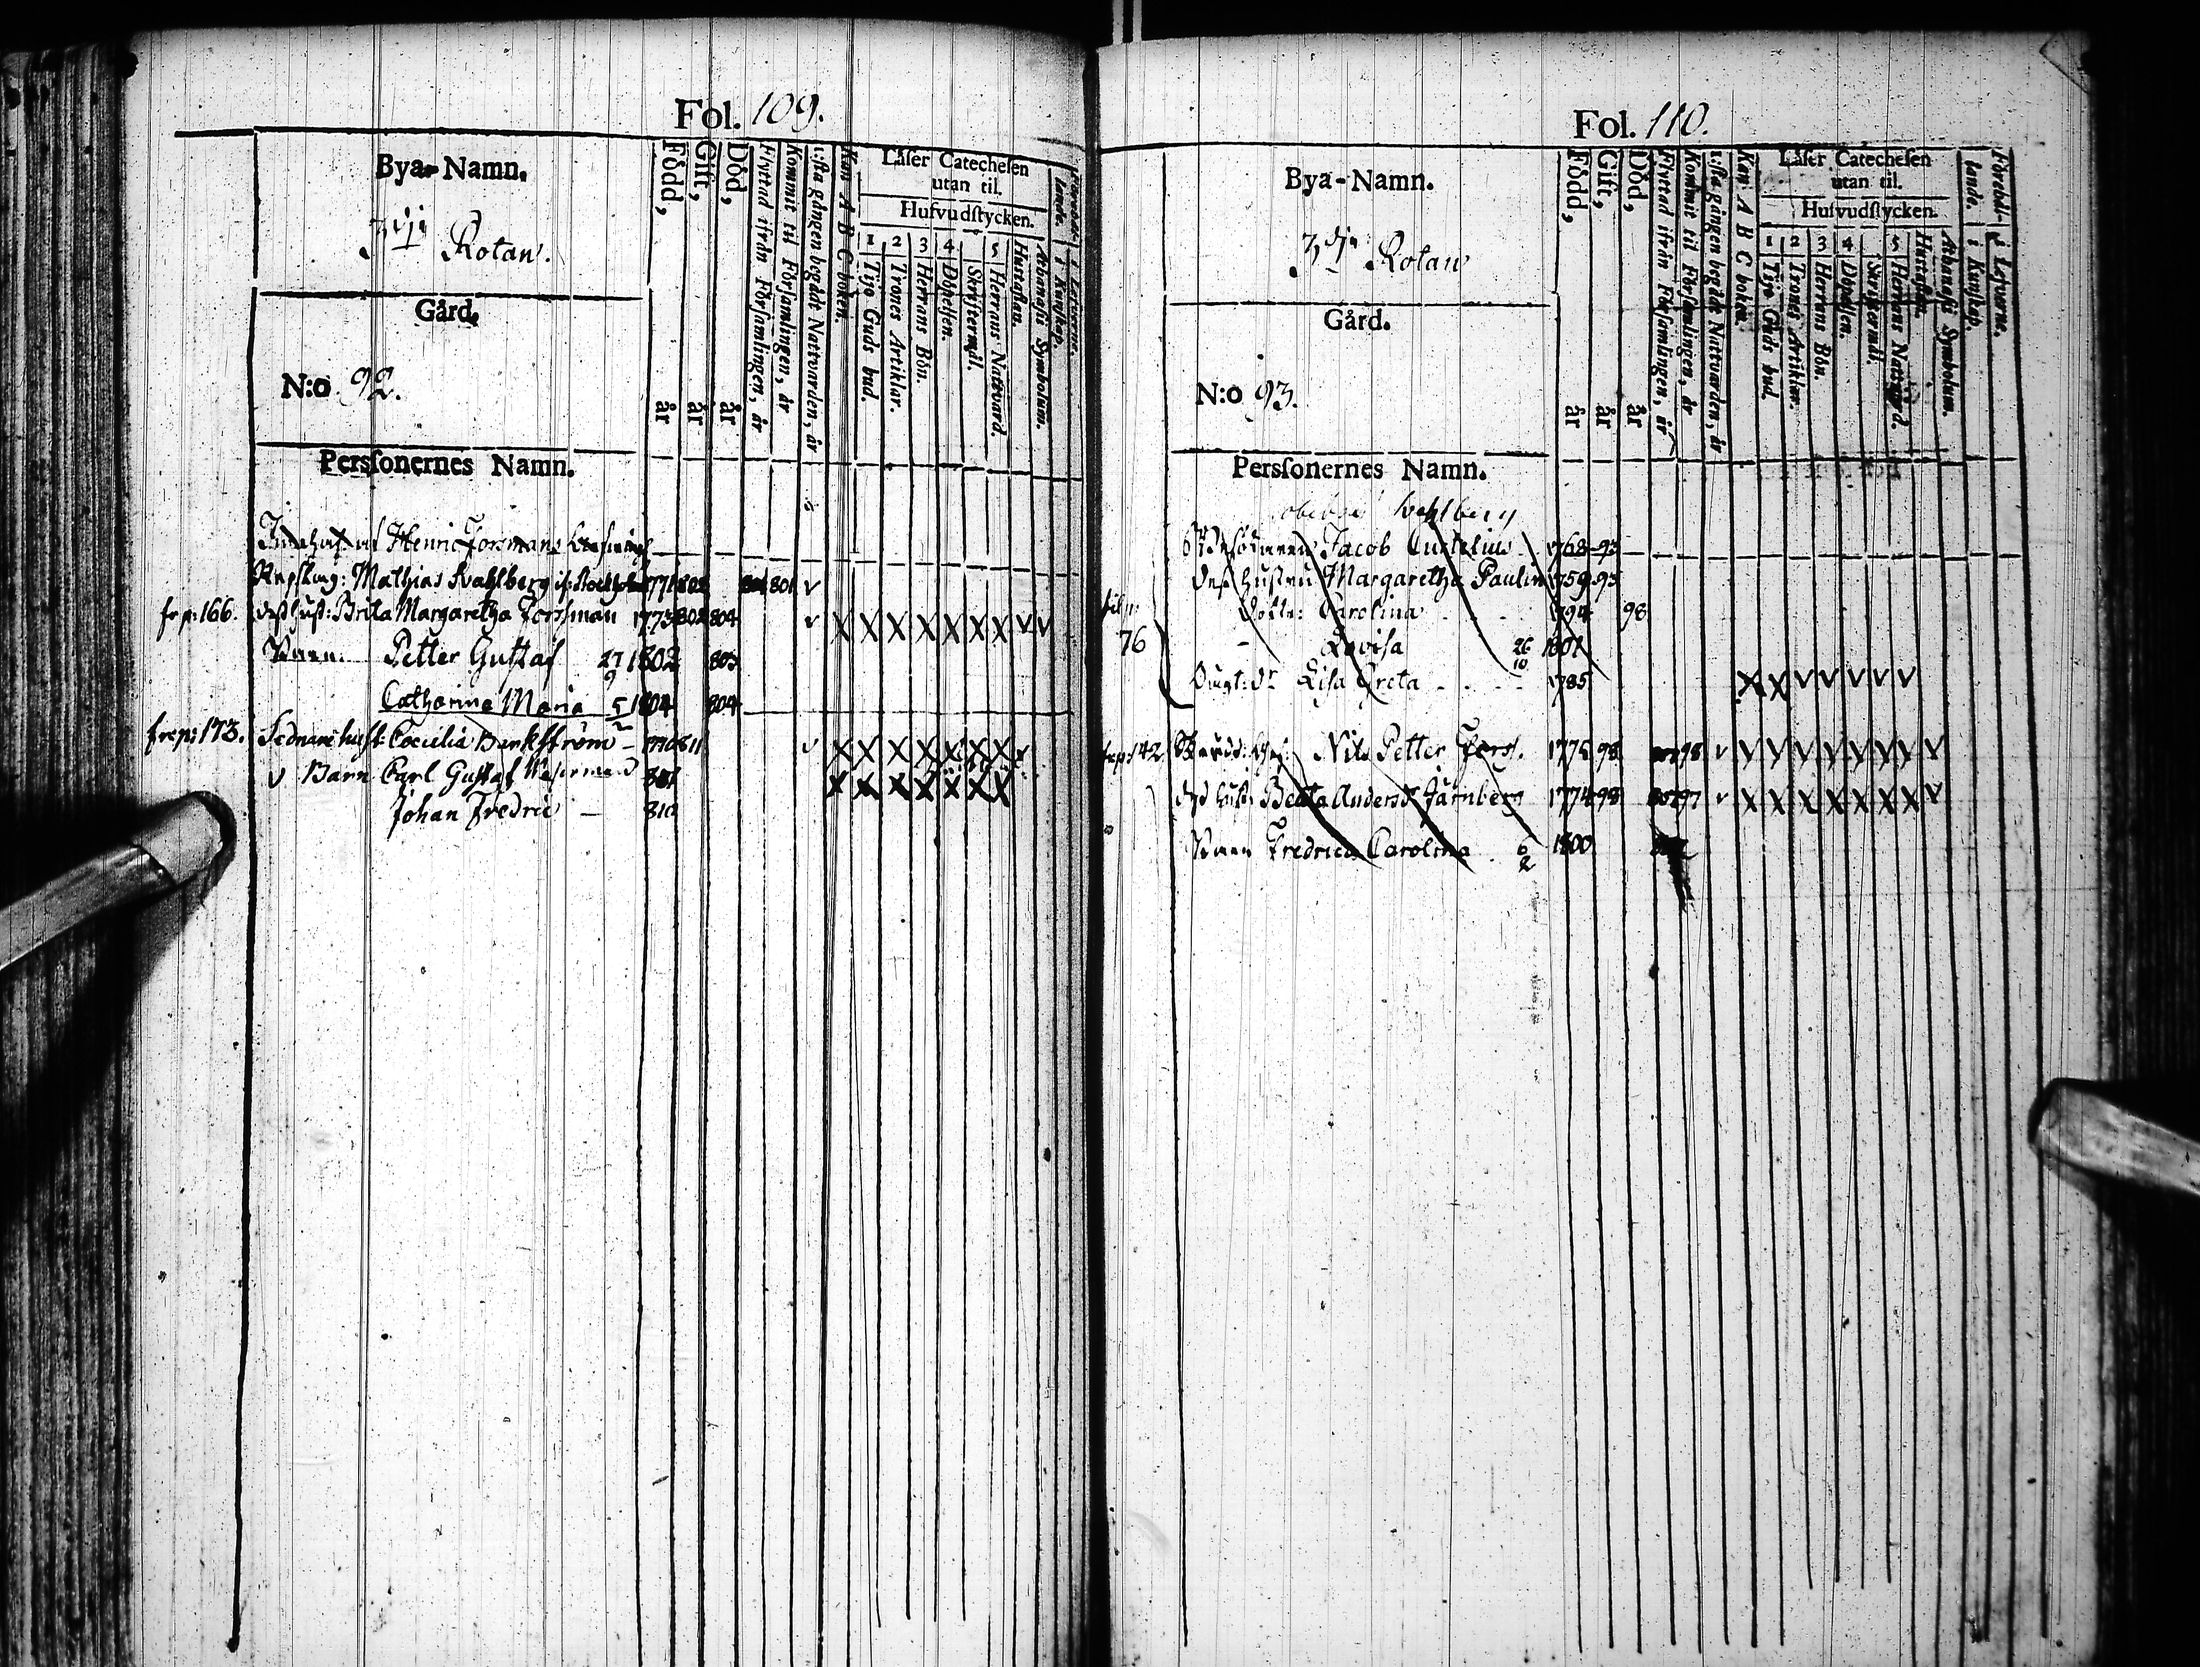 Fol. 109.
Bya-Namn.
3dje Rotan.
Gård.
N:o 92.
Persſonernes Namn.
Född, år
Gift, år
Död, år
Flyttad ifrån Församlingen, år
Kommit til Församlingen, år
1:sta gången begådt Nattvarden, år
Kan A B C boken.
Låſer Catecheſen
utan til.
Hufvudſtycken.
1 Tijo Guds bud.
2 Trones Artiklar.
3 Herrans Bön.
4 Döpelſen.
Skriftermål.
5 Herrans Nattvard.
Hustaflan.
Athanaſii Symbolum.
i Kunſkap.
i Lefverne.
Henric Forsmans
Mathias Kvahlberg 1771 802 801 v
fr p: 166. deſs hust: Brita Margaretha Forsman 1773 802 804 v X X X X X X X V V
Barn. Petter Gustaf 27/9 1802 803
Catharina Maria 5/2 1804 804
fr p: 173. Sednare hust: Cæcilia 811 v X X X X X X X v
v Barn Carl Gustaf X X X X X X X
Johan Fredric — 810
Fol. 110.
Bya-Namn.
3dje Rotan
Gård.
N:o 93.
Persſonernes Namn.
Född, år
Gift, år
Död, år
Flyttad ifrån Församlingen, år
Kommit til Församlingen, år
1:sta gången begådt Nattvarden, år
Kan A B C boken.
Låſer Catecheſen
utan til.
Hufvudſtycken.
1 Tijo Guds bud.
2 Trones Artiklar.
3 Herrans Bön.
4 Döpelſen.
Skriftermål.
5 Herrans Nattvard.
Hustaflan.
Athanaſii Symbolum.
Förehål-
lande.
i Kunſkap.
i Lefverne.
Jacob 1768 93
deſs hustru Margaretha Paulin 1759 93
til p: 76
Dotter: Carolina 1794 98
- Lovisa 26/10 1801
Lisa Greta 1785 X X V V V V V
fr p: 142. Nils Petter 1775 98 98 v
deſs hust: Beata Anders dr Järnberg 1774 98 97 v X X X X X X X V
Barn Fredrica Carolina 6/2 1800